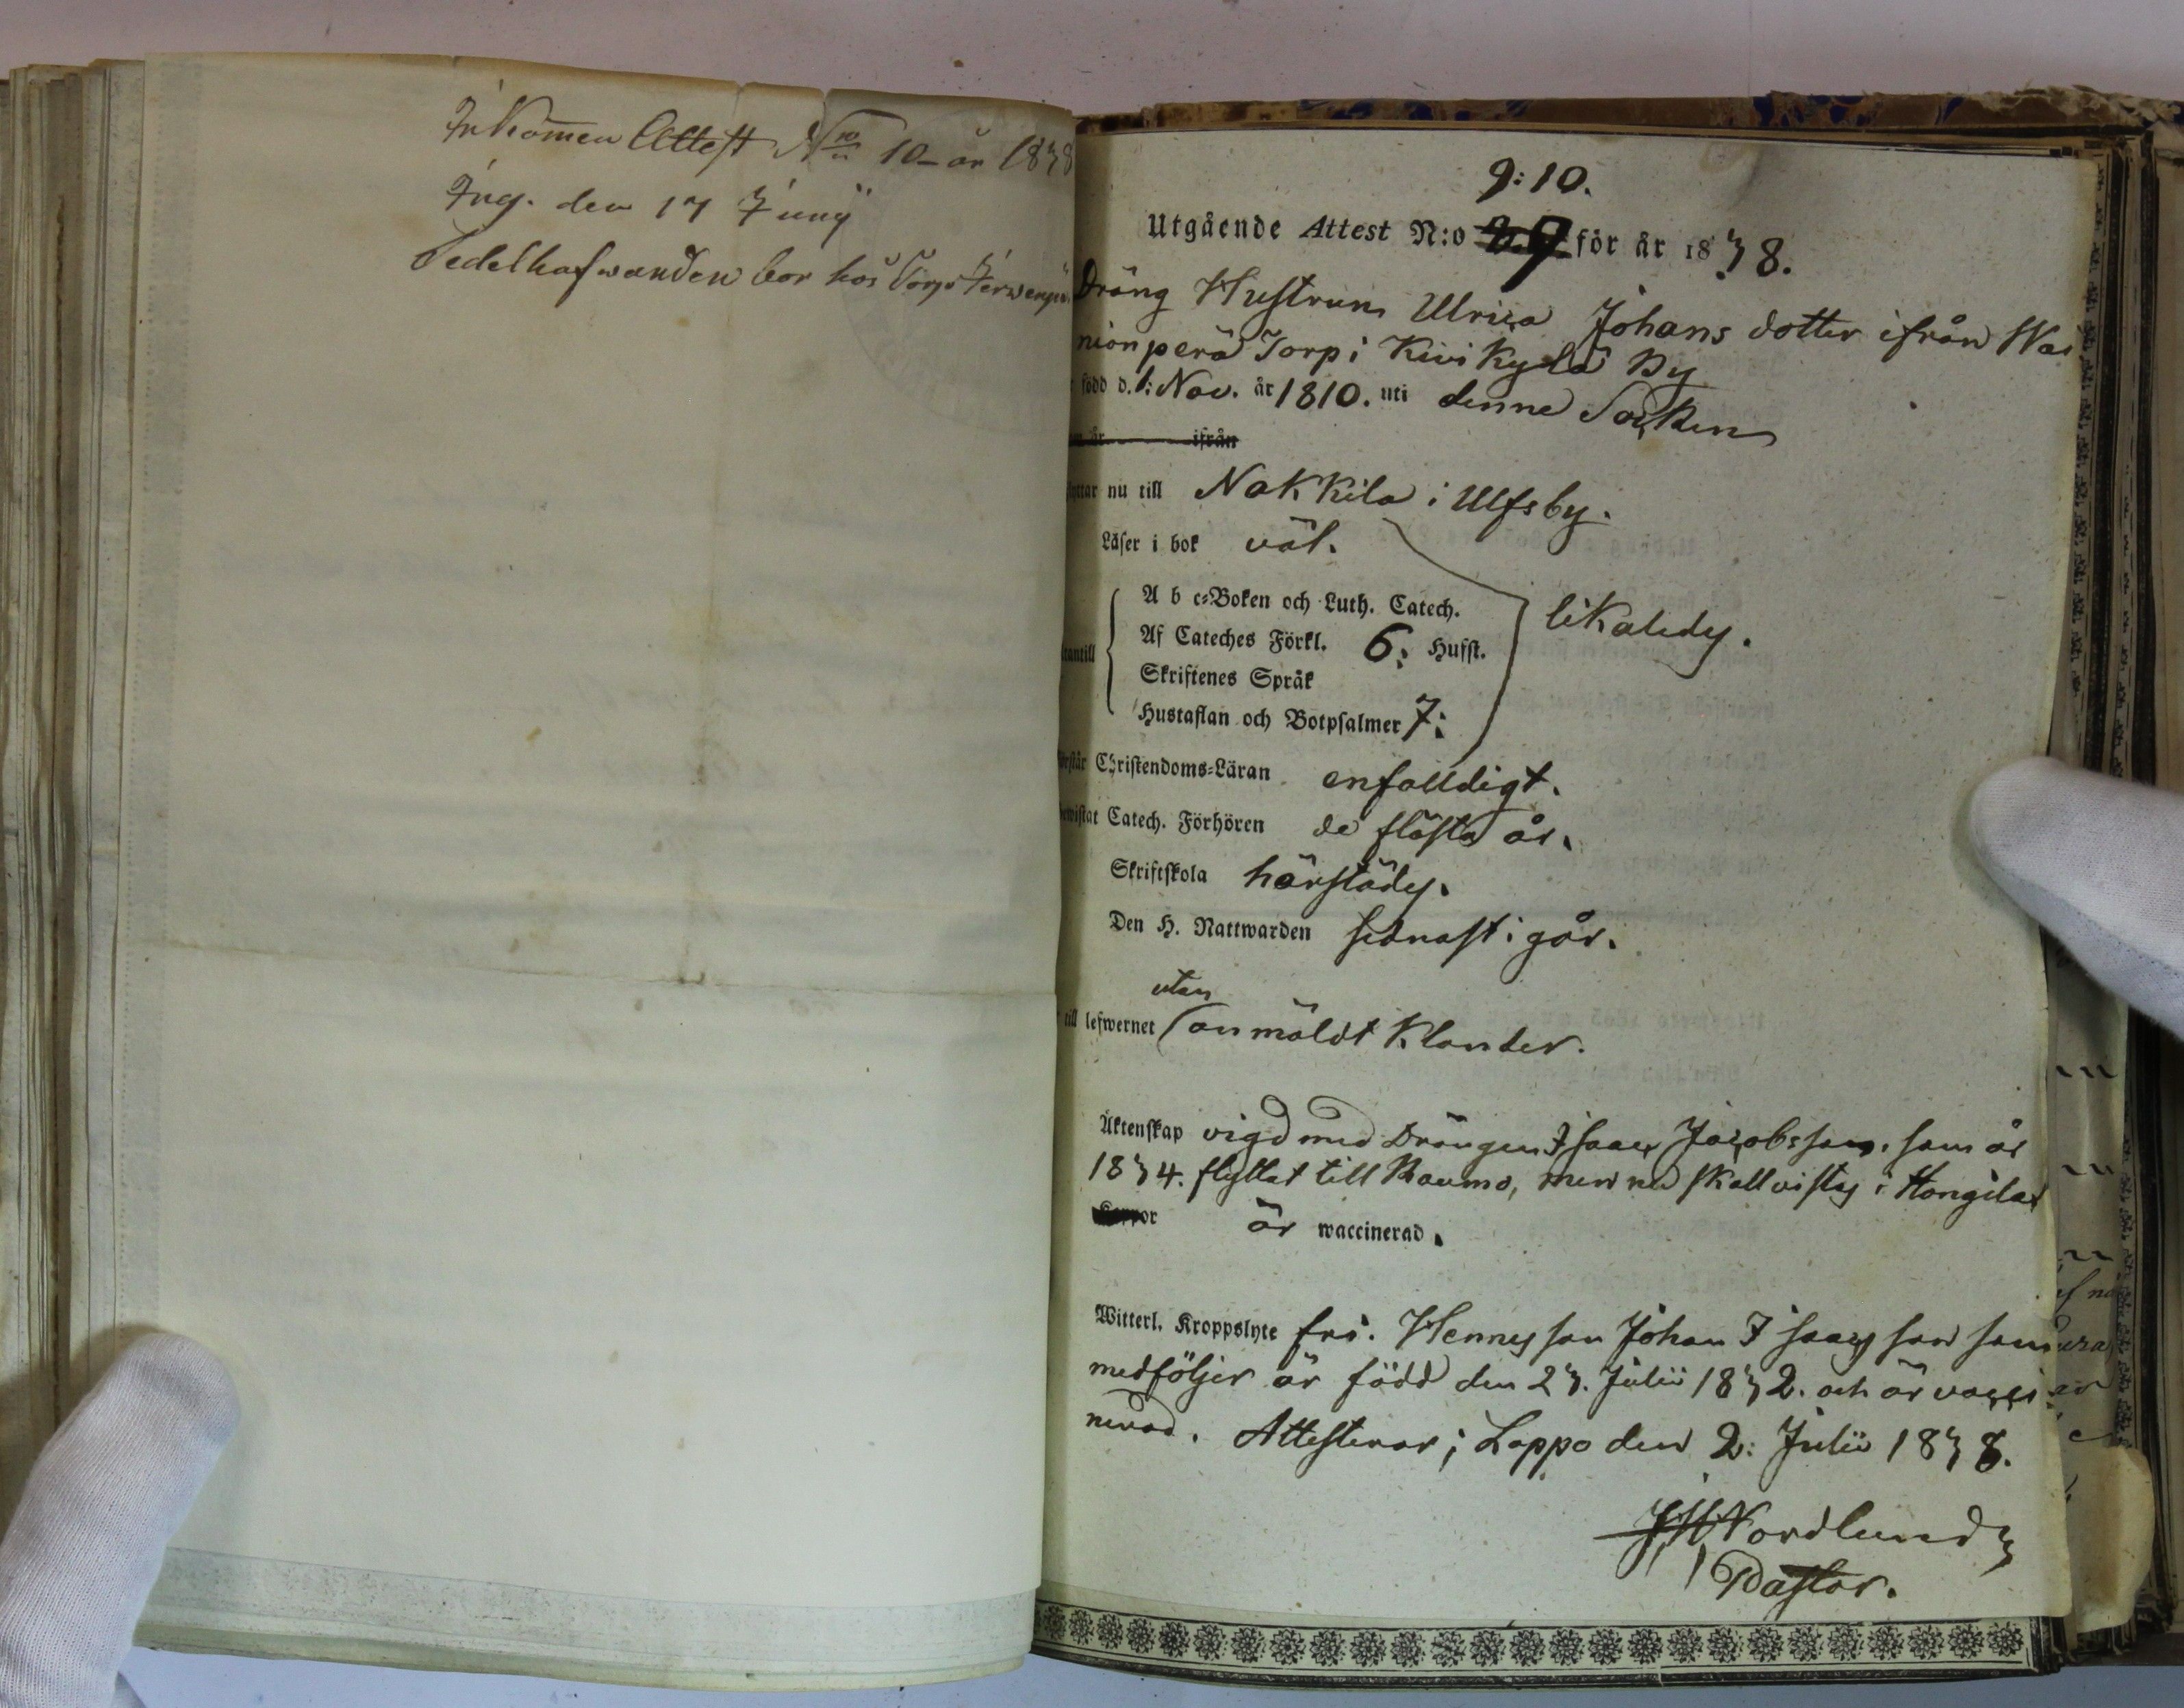 Inkommen Attest Nro 10 år 1838
Ing. den 17 Junÿ
Sedelhafwanden bor hos Torp
9:10.
Utgående Attest N:o för år 1838.
Dräng Hustrun Ulrica Johans dotter ifrån Wai
nionperä Torp i Kivikylä By
född d. 1: Nov. år 1810. uti denne Socken
år ifrån
flyttar nu till Nakkila i Ulfsby.
Läser i bok väl.
A b c-Boken och Luth. Catech.
Af Cateches Förkl. 6: Hufst.
likaledes.
utantill
Skriftenes Språk
Hustaflan och Botpsalmer 7:
Förstår Christendoms-Läran enfalldigt.
bewistat Catech. Förhören de flästa år.
Skriftskola härstädes.
Den H. Nattwarden sednast i går.
utan
till lefwernet anmäldt Klander.
Äktenskap vigd med Drängen Isaac Jacobsson, som år
1834. flyttat till Raumo, men nu skall vistas i Hongila
Koppor är waccinerad.
Witterl. Kroppslyte fri. Hennes son Johan Isaacs son som
medföljer är född den 23. Julii 1832. och är vacci
nerad. Attesterar; Lappo den 2: Julii 1838.
Nordlund
Pastor.